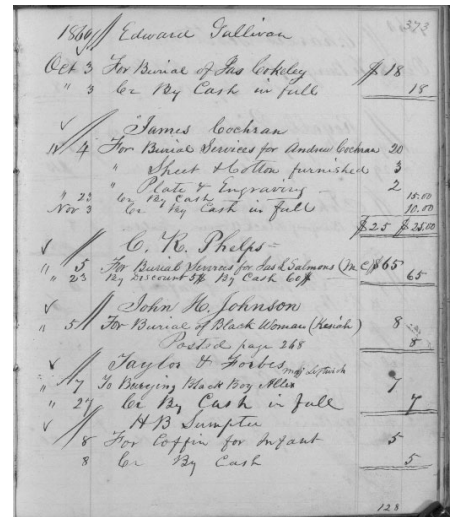 373
1860 Edward Gallivan
Oct 3 For Burial of Jas Cokeley $ 18
" 3 Cr By Cash in full 18
James Cochran
" 4 For Burial Services for Andrew Cochran 20
" Sheet & Cotton furnished 3
" Plate & Engraving 2
" 23 Cr By Cash 15.00
Nov 3 Cr By Cash in full 10.00
$ 25 $ 25.00
C. R. Phelps
" 5 For Burial Services for Jas L Salmons $65
" 23 By Discount 5$ By Cash 60$ 65
John H. Johnson
" 5 For Burial of Black Woman (Kesiah) 8
Posted page 268 8
Taylor & Forbes
" 7 To Burying Black Boy Allen 7
" 27 Cr By Cash in full 7
H B Sumpter
8 For Coffin for Infant 5
8 Cr By Cash 5
128